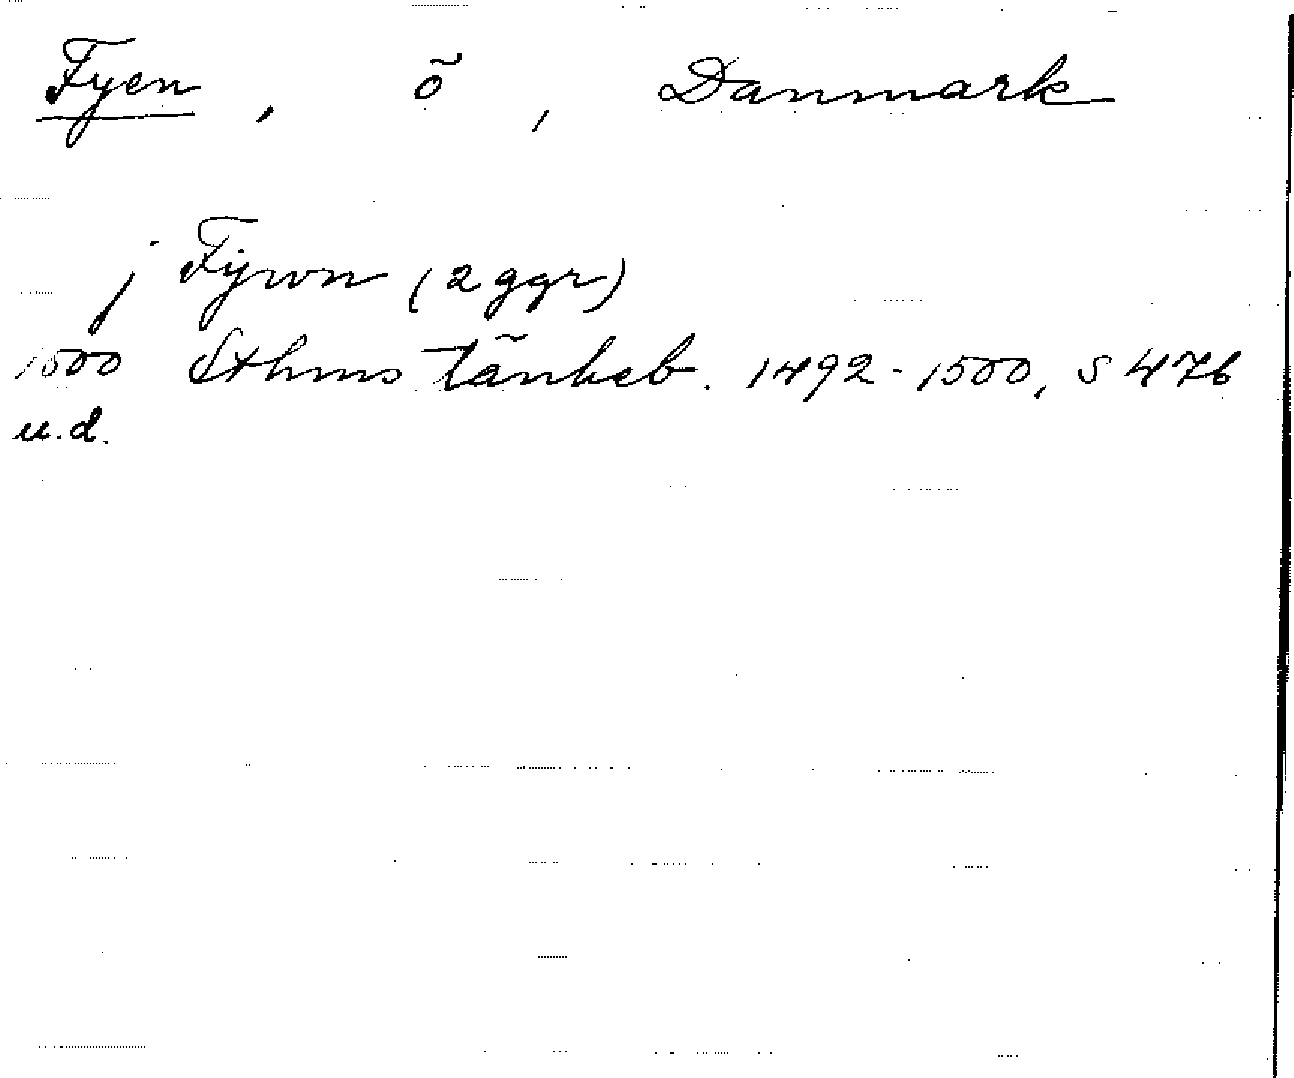 Fyen, ö, Danmark
j Fÿwn (2 ggr)
1500 Sthms tänkeb. 1492-1500, s 476
u.d.